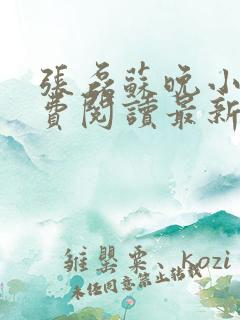 張磊蘇晚小
費閱讀最新
雒巽粟、kozi
未经同意禁止转载